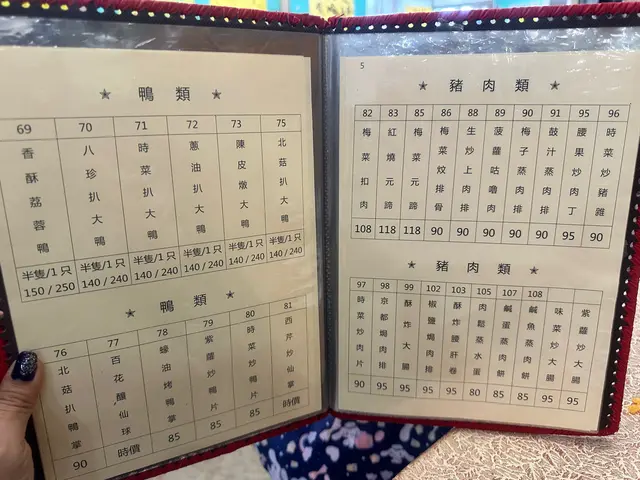 ★ 鴨類 ★
69 70 71 72 73 75
香酥荔蓉鴨
八珍扒大鴨
時菜扒大鴨
蔥油扒大鴨
陳皮燉大鴨
北菇扒大鴨
半隻/1只 半隻/1只 半隻/1只 半隻/1只 半隻/1只 半隻/1只
150 / 250 140 / 240 140 / 240 140 / 240 140 / 240 140 / 240
★ 鴨類 ★
76 77 78 79 80 81
北菇扒鴨掌
百花釀仙球
蠔油烤鴨掌
紫蘿炒鴨片
時菜炒鴨片
西芹炒仙掌
90 時價 85 85 85 時價
5
★ 豬肉類 ★
82 83 85 86 88 89 90 91 95 96
梅菜扣肉
紅燒元蹄
梅菜元蹄
梅菜炆排骨
生炒上肉排
菠蘿咕嚕肉
梅子蒸肉排
鼓汁蒸肉排
腰果炒肉丁
時菜炒豬雜
108 118 118 90 90 90 90 90 95 90
★ 豬肉類 ★
97 98 99 102 103 105 107 108
時菜炒肉片
京都焗肉排
酥炸大腸
椒鹽焗肉排
酥炸腰肝卷
肉鬆蒸水蛋
鹹蛋蒸肉餅
鹹魚蒸肉餅
味菜炒大腸
紫蘿炒大腸
90 90 95 90 95 80 85 90 95 95